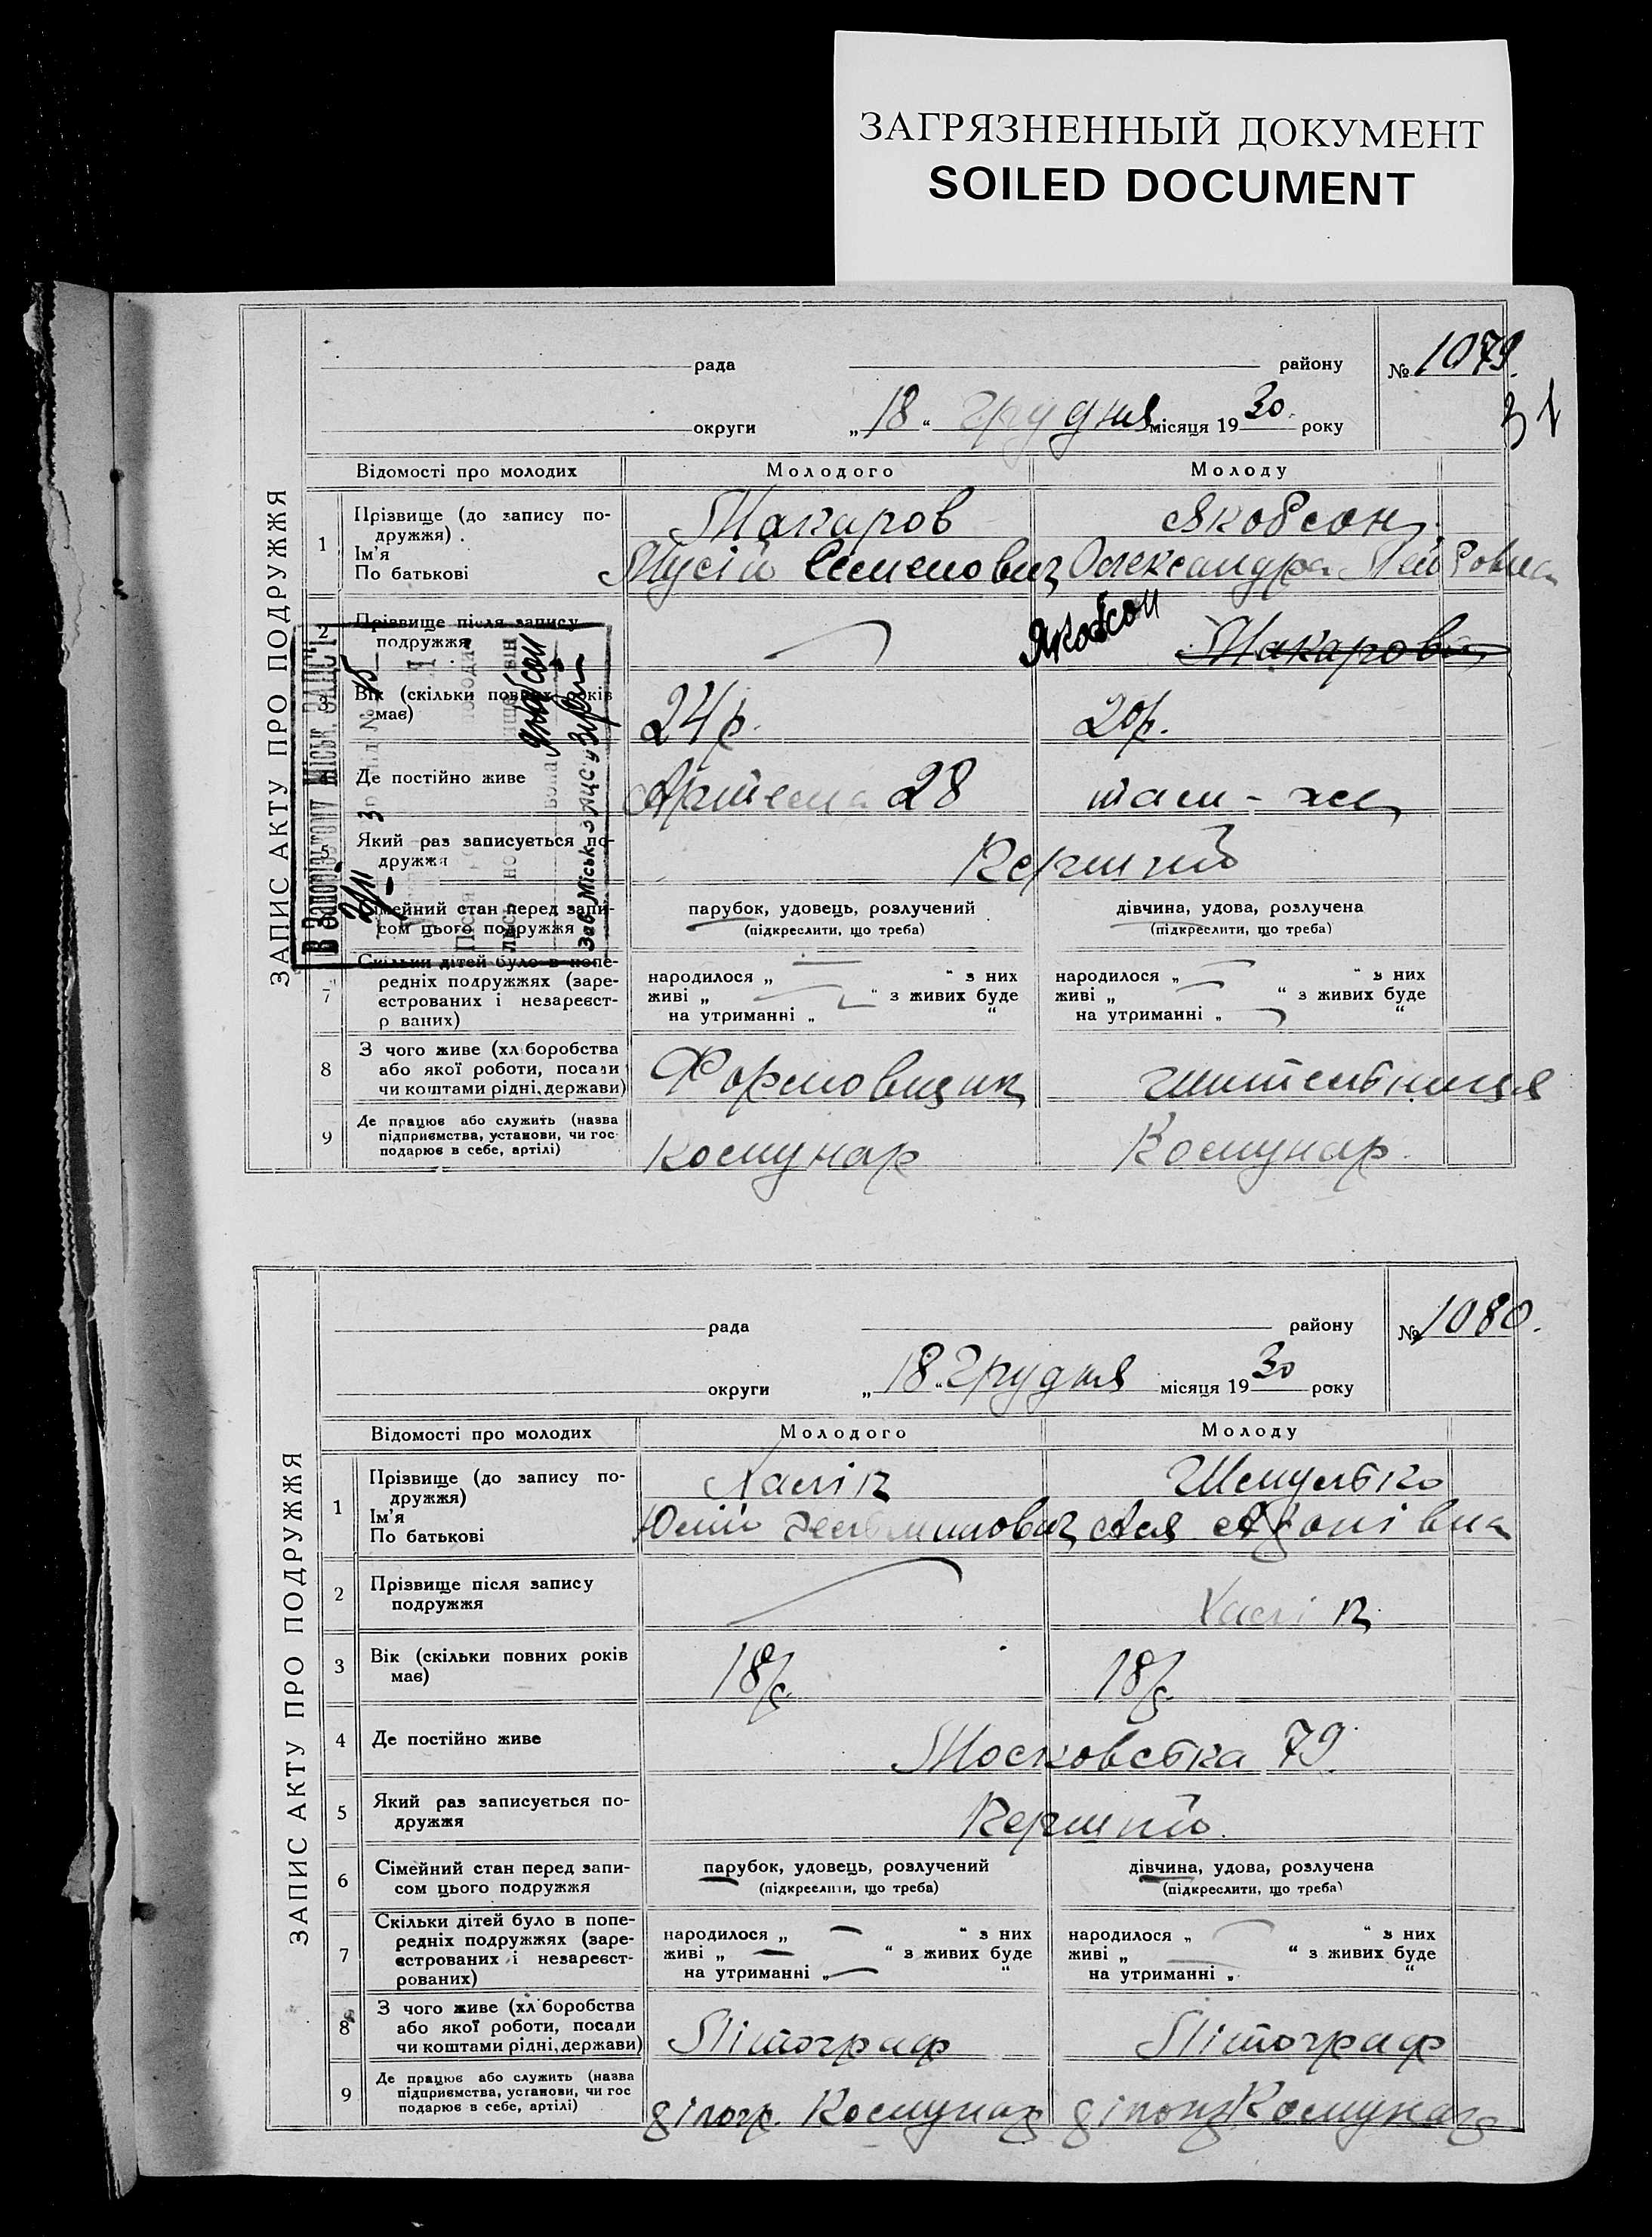 ЗАГРЯЗНЕННЫЙ ДОКУМЕНТ
SOILED DOCUMENT
ЗАПИС АКТУ ПРО ПОДРУЖЖЯ
рада району № 1079.
31
округи „18“ грудня місяця 1930. року
Відомості про молодих Молодого Молоду
1 Прізвище (до запису по-
дружжя). Макаров Якобсон
Ім'я
По батькові Мусій Семенович Олександра
2 Прізвище після запису
подружжя Якобсон Макарова
3 Вік (скільки повних років
має) 24р. 20р.
4 Де постійно живе Артема 28 там-же
Який раз записується по-
дружжя Перший
Сімейний стан перед запи-
сом цього подружжя парубок, удовець, розлучений дівчина, удова, розлучена
(підкреслити, що треба) (підкреслити, що треба)
7 Скільки дітей було в попе-
редніх подружжях (заре-
єстрованих і незареєст-
р ваних) народилося „ “ з них народилося „ “ з них
живі „ “ з живих буде живі „ “ з живих буде
на утриманні „ “ на утриманні „ “
8 З чого живе (хліборобства
або якої роботи, посади
чи коштами рідні, держави) Формовщик
9 Де працює або служить (назва
підприємства, установи, чи гос-
подарює в себе, артілі) Комунар Комунар.
В Запорізькому Міськ ЗАГСІ
Якобсон
Зав. Міськ.
ЗАПИС АКТУ ПРО ПОДРУЖЖЯ
рада району № 1080.
округи „18“ Грудня місяця 1930 року
Відомості про молодих Молодого Молоду
1 Прізвище (до запису по-
дружжя) Хаслік Шемулько
Ім'я
По батькові Ася
2 Прізвище після запису
подружжя
3 Вік (скільки повних років
має) 18р. 18р.
4 Де постійно живе Московська 79.
5 Який раз записується по-
дружжя Перший.
6 Сімейний стан перед запи-
сом цього подружжя парубок, удовець, розлучений дівчина, удова, розлучена
(підкреслити, що треба) (підкреслити, що треба)
7 Скільки дітей було в попе-
редніх подружжях (заре-
єстрованих і незареєст-
рованих) народилося „ “ з них народилося „ “ з них
живі „ “ з живих буде живі „ “ з живих буде
на утриманні „ “ на утриманні „ “
8 З чого живе (хліборобства
або якої роботи, посади
чи коштами рідні, держави) Літограф Літограф
9 Де працює або служить (назва
підприємства, установи, чи гос
подарює в себе, артілі) Комунар Комунар